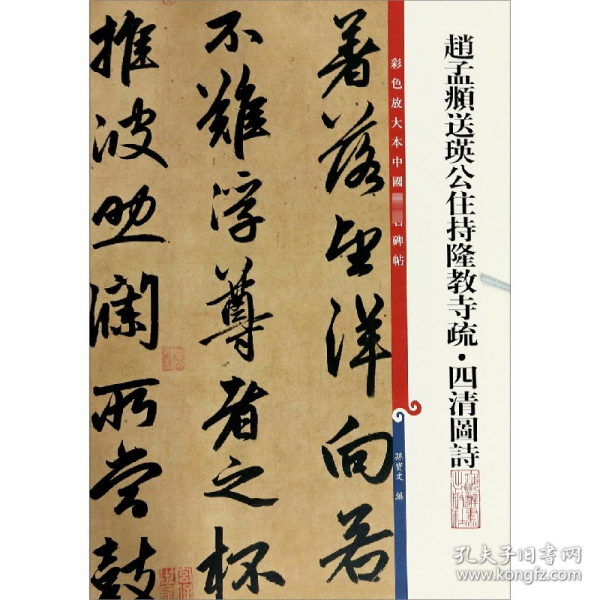 趙孟頫送瑛公住持隆教寺疏·四清圖詩
彩色放大本中國
名碑帖
孫寶文 編
著落望洋向若
不難浮尊者之杯
推波助瀾所當鼓
孔夫子旧书网
www.kongfz.com